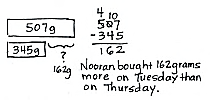 507g
345g
?
162g
4 10
507
-345
162
Nooran bought 162 grams
more on Tuesday than
on Thursday.